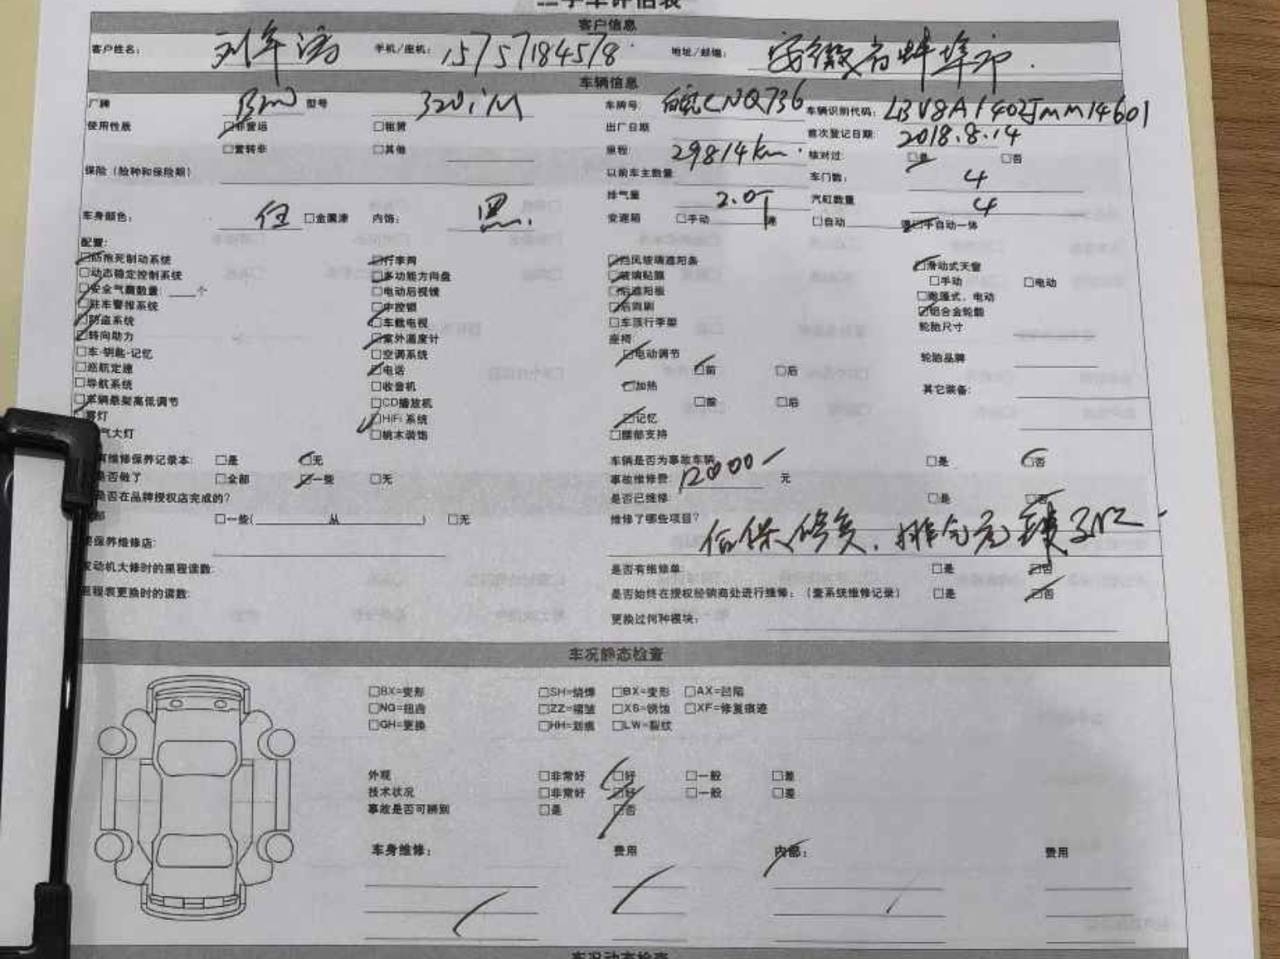 二手车评估表
客户信息
客户姓名： 手机/座机：15757184578 地址/邮编：安徽省蚌埠市.
车辆信息
厂牌 BMW 型号 320iM 车牌号 CNQ736 车辆识别代码：
使用性质 □非营运 □租赁 出厂日期 首次登记日期 2018.8.14
□营转非 □其他 里程：29814km. 核对过 □是 □否
保险（险种和保险期） 以前车主数量 车门数： 4
排气量 2.0T 汽缸数量 4
车身颜色： □金属漆 内饰： 黑. 变速箱 □手动 □自动 □手自动一体
配置：
□防抱死制动系统 □行李网 □挡风玻璃遮阳条 □滑动式天窗
□动态稳定控制系统 □多功能方向盘 □玻璃贴膜 □手动 □电动
□安全气囊数量：____个 □电动后视镜 □后遮阳板 □敞篷式、电动
□驻车警报系统 □中控锁 □后雨刷 □铝合金轮毂
□防盗系统 □车载电视 □车顶行李架 轮胎尺寸
□转向助力 □室外温度计 座椅：
□车-钥匙-记忆 □空调系统 □电动调节 轮胎品牌
□巡航定速 □电话 □前 □后
□导航系统 □收音机 □加热 其它装备：
□车辆悬架高低调节 □CD播放机 □前 □后
□雾灯 □HiFi 系统 □记忆
气大灯 □桃木装饰 □腰部支持
有维修保养记录本： □是 □无 车辆是否为事故车辆 □是 □否
是否做了 □全部 □一些 □无 事故维修费：12000 元
是否在品牌授权店完成的？ 是否已维修 □是 □否
部 □一些( 从 ) □无 维修了哪些项目？
保养维修店：
发动机大修时的里程读数： 是否有维修单： □是 □否
里程表更换时的读数： 是否始终在授权经销商处进行维修：（查系统维修记录） □是 □否
更换过何种模块：
车况静态检查
□BX=变形 □SH=烧爆 □BX=变形 □AX=凹陷
□NQ=扭曲 □ZZ=褶皱 □XS=锈蚀 □XF=修复痕迹
□GH=更换 □HH=划痕 □LW=裂纹
外观 □非常好 □好 □一般 □差
技术状况 □非常好 □好 □一般 □差
事故是否可辨别 □是 □否
车身维修： 费用 内部： 费用
车况动态检查